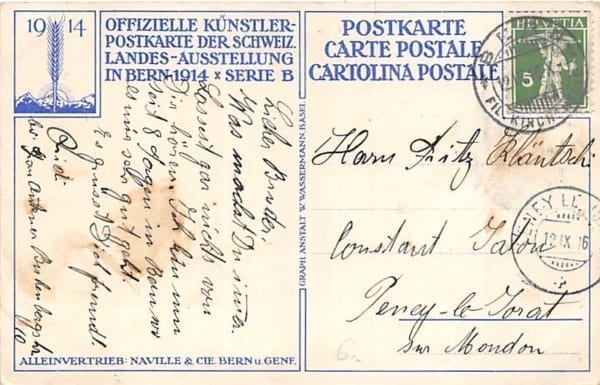 19 14
OFFIZIELLE KÜNSTLER-
POSTKARTE DER SCHWEIZ.
LANDES-AUSSTELLUNG
IN BERN·1914 x SERIE B
POSTKARTE
CARTE POSTALE
CARTOLINA POSTALE
HELVETIA
5
BERN
FIL. KIRCH
Lieber Bruder
Was machst Du immer
Lassest gar nichts von
Dir hören. Ich bin nun
seit 8 Tagen in Bern wo
es mir sehr gut geht
Es grüsst Dich freundl.
GRAPH. ANSTALT W. WASSERMANN, BASEL
Hans Fritz Kläntschi
Constant
Peney-le-Jorat
sur Moudon
PENEY LE
12 IX 16
6.-
ALLEINVERTRIEB: NAVILLE & CIE. BERN u. GENF.